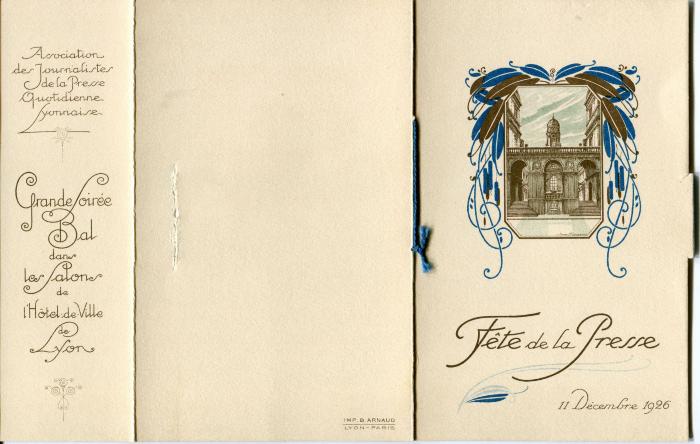 Association
des Journalistes
de la Presse
Quotidienne
Lyonnaise
Grande Soirée
Bal
dans
les Salons
de
l'Hôtel-de-Ville
de
Lyon
IMP. B. ARNAUD
LYON-PARIS
Fête de la Presse
11 Décembre 1926